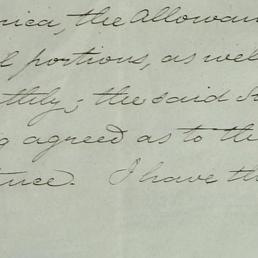 rica, the Allowan
l portions, as wel
thly; the said S
g agreed as to the
tence. I have th